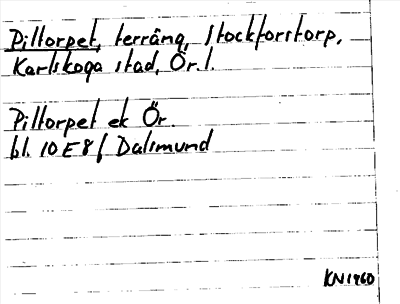 Piltorpet, terräng, Stockforstorp,
Karlskoga stad, Ör. l.
Piltorpet ek Ör.
bl. 10 E 8 f Dalsmund
KN 1960